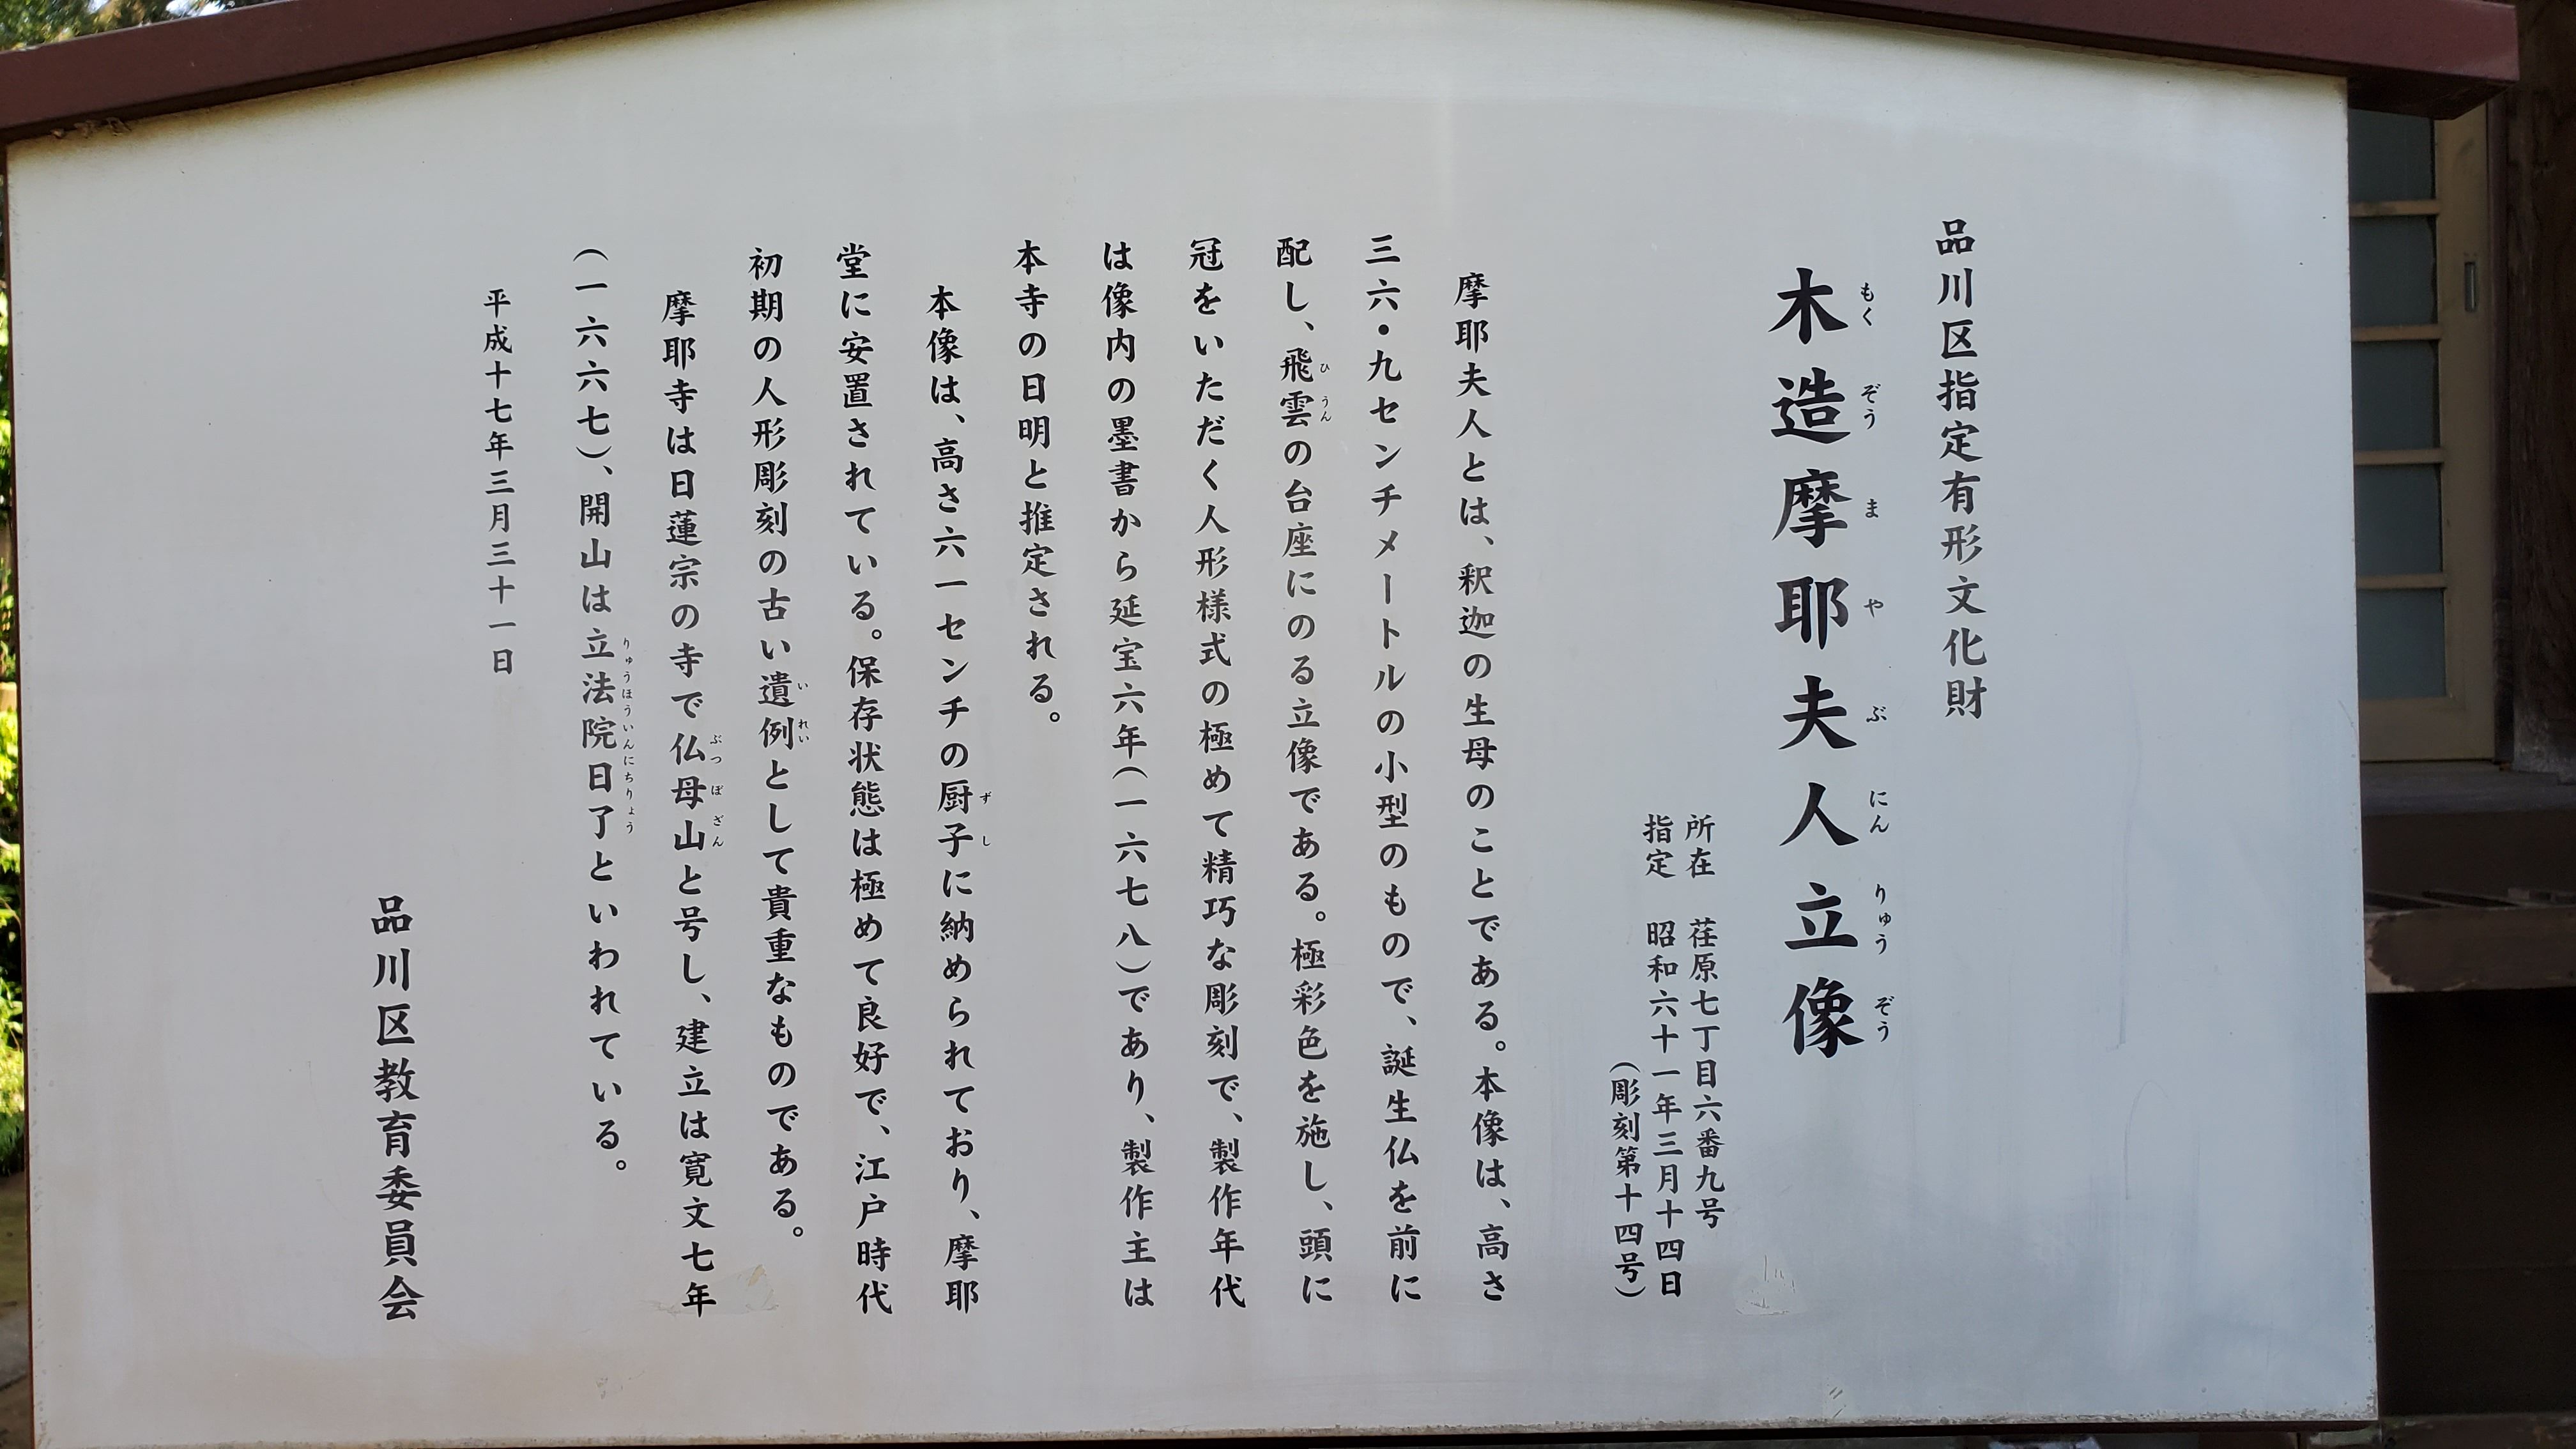 品川区指定有形文化財
木造摩耶夫人立像
もくぞうまやぶにんりゅうぞう
所在 荏原七丁目六番九号
指定 昭和六十一年三月十四日
(彫刻第十四号)
摩耶夫人とは、釈迦の生母のことである。本像は、高さ
三六・九センチメートルの小型のもので、誕生仏を前に
配し、飛雲の台座にのる立像である。極彩色を施し、頭に
ひうん
冠をいただく人形様式の極めて精巧な彫刻で、製作年代
は像内の墨書から延宝六年(一六七八)であり、製作主は
本寺の日明と推定される。
本像は、高さ六一センチの厨子に納められており、摩耶
ずし
堂に安置されている。保存状態は極めて良好で、江戸時代
初期の人形彫刻の古い遺例として貴重なものである。
いれい
摩耶寺は日蓮宗の寺で仏母山と号し、建立は寛文七年
ぶつぼざん
(一六六七)、開山は立法院日了といわれている。
りゅうほういんにちりょう
平成十七年三月三十一日
品川区教育委員会